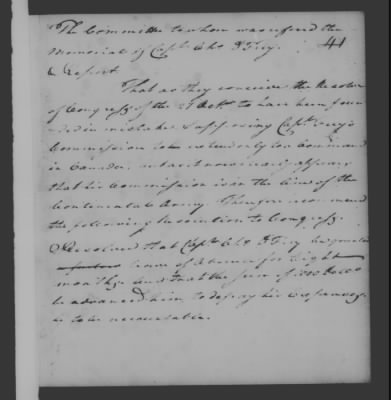 The Committee to whom was referred the
Memorial of Capt. Chs D Frey. 41
Report
That as they conceive the Resolve
of Congress of the 21 to have been foun
ded in mistake, supposing Capt. Frey's
Commission to extend only to a Command
in Canada. whereas it appears
that his Commission is in the line of the
Continental Army. Therefore recommend
the following Resolution to Congress.
Resolved that Capt. Chs D Frey be granted
a leave of Absence for Eight
months. And that the sum of 1000 Dollars
be advanced him to defray his Expences
as to be accountable.